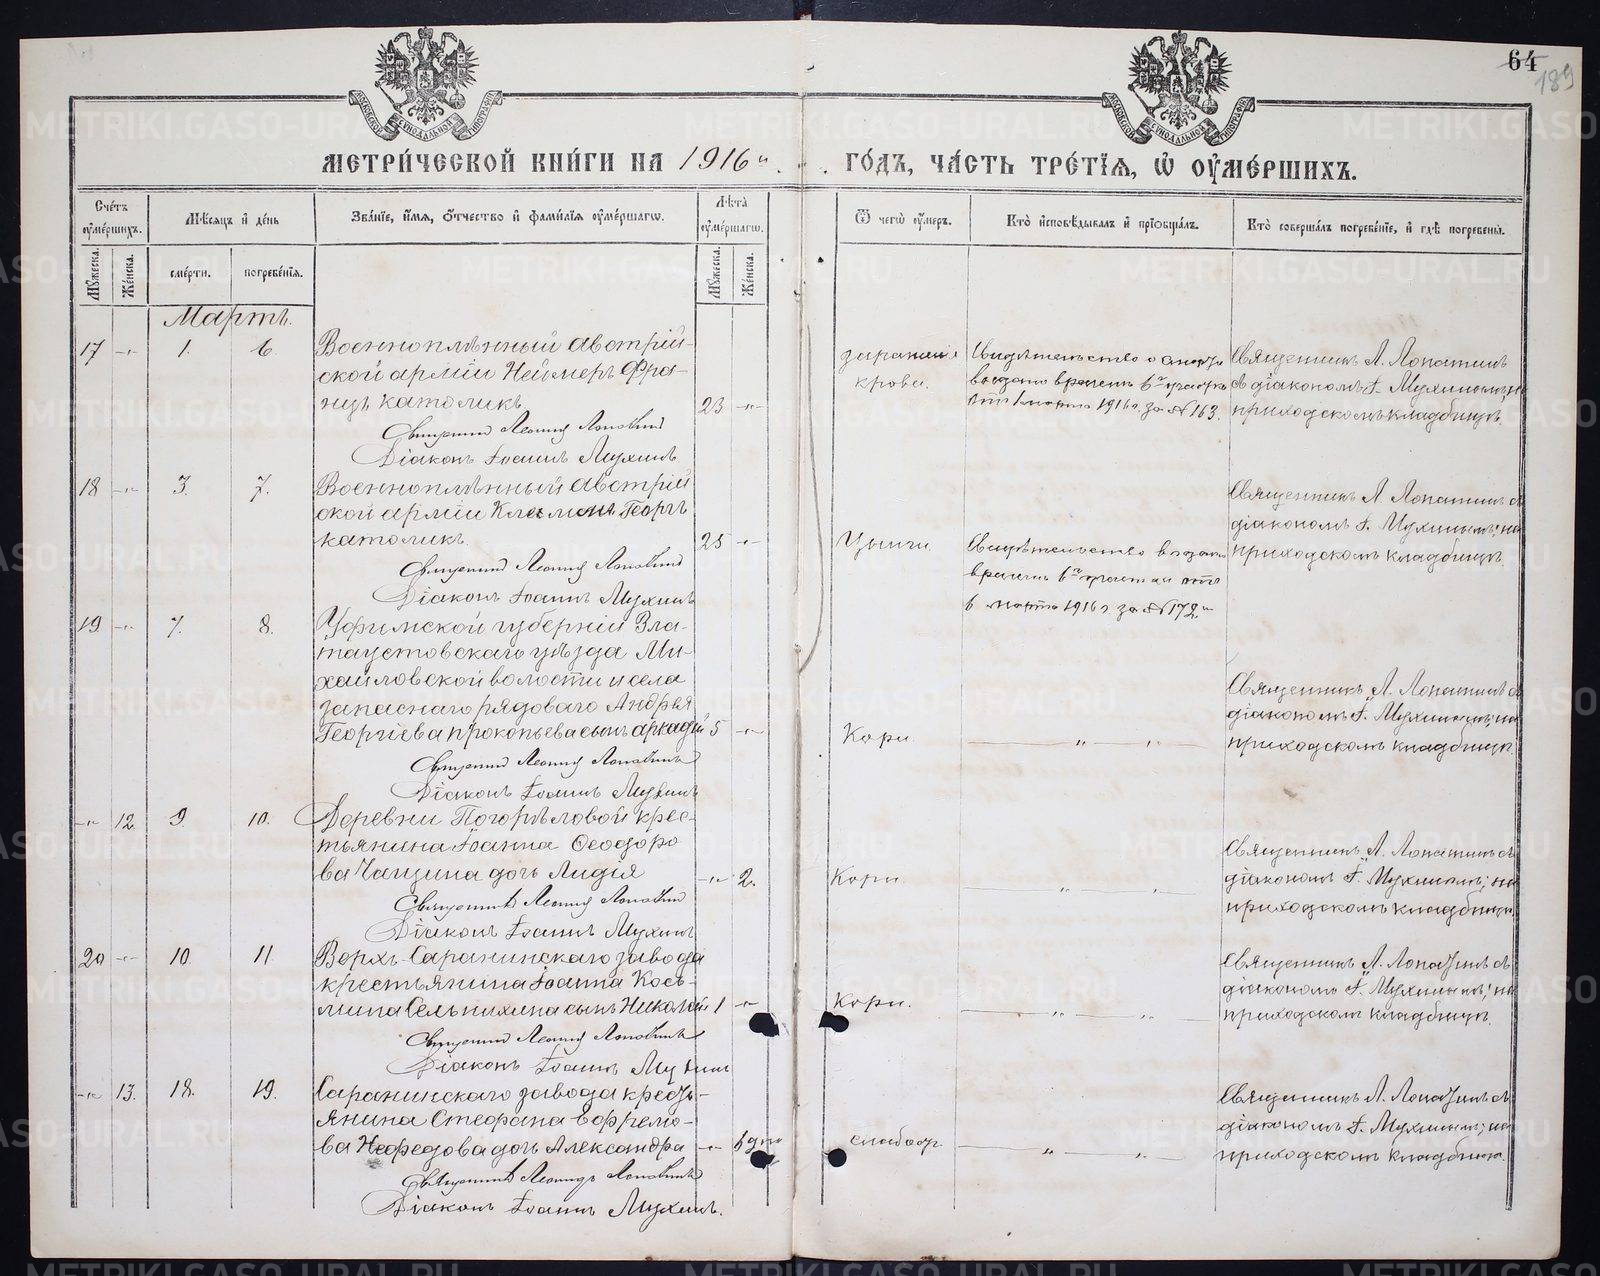 64
189
МОСКОВСКОЙ СѴНОДАЛЬНОЙ ТИПОГРАФІИ
МОСКОВСКОЙ СѴНОДАЛЬНОЙ ТИПОГРАФІИ
МЕТРИ́ЧЕСКОЙ КНИ́ГИ НА 1916 й ГО́ДЪ, ЧА́СТЬ ТРЕ́ТІѦ, Ѽ ОУ҆МЕ́РШИХЪ.
Сче́тъ оу҆ме́ршихъ.
Мꙋ́жеска.
Же́нска.
Мѣ́сяцъ и҆ де́нь
сме́рти.
погребе́нїѧ.
Зва́нїе, и҆́мѧ, ѻ҆́тчество и҆ фами́лїѧ оу҆ме́ршагѡ.
Лѣ́та оу҆ме́ршагѡ.
Мꙋ́жеска.
Же́нска.
Ѿ чегѡ̀ оу҆́меръ.
Кто̀ и҆сповѣ́дывалъ и҆ прїѡбща́лъ.
Кто̀ соверша́лъ погребе́нїе, и҆ гдѣ̀ погребены̀.
Мартъ.
17 -„- 1. 6
Военноплѣнный австрій-
ской арміи Неймеръ Фра-
нцъ католикъ
23 -„-
Священникъ Леонид Лопатин
Діаконъ Іоаннъ Мухинъ
зараженія
крови.
Свидѣтельство о смерти
выдано врачемъ 6го участка
отъ 1 марта 1916 г. за № 163.
Священникъ Л. Лопатинъ
съ діакономъ І. Мухинымъ; на
приходскомъ кладбищѣ.
18 -„- 3. 7.
Военноплѣнный австрій
ской арміи Георгъ
католикъ.
25 -„-
Священник Леонид Лопатин
Діаконъ Іоаннъ Мухинъ
Цынги.
Свидѣтельство выдано
врачемъ 6го участка отъ
6 марта 1916 г. за № 172.
Священникъ Л. Лопатинъ съ
діакономъ І. Мухинымъ; на
приходскомъ кладбищѣ.
19 -„- 7. 8.
Уфимской губерніи Зла-
таустовскаго уѣзда Ми-
хайловской волости и села
запаснаго рядоваго Андрея
Георгіева Прокопьева сынъ Аркадій
5 -„-
Священник Леонид Лопатинъ
Діаконъ Іоаннъ Мухинъ
Кори
„ „
Священникъ Л. Лопатинъ съ
діакономъ І. Мухинымъ; на
приходскомъ кладбищѣ
-„- 12. 9. 10.
Деревни Погорѣловой крес-
тьянина Іоанна Ѳеодоро
ва Чащина дочь Лидія
-„- 2.
Священникъ Леонид Лопатин
Діаконъ Іоаннъ Мухинъ
Кори
„ „
Священникъ Л. Лопатинъ съ
діакономъ І. Мухинымъ; на
приходскомъ кладбищѣ.
20 -„- 10. 11.
Верхъ-Саранинскаго завода
крестьянина Іоанна Кось-
мина Сельнихина сынъ Николай
1 -„-
Священник Леонид Лопатинъ
Діаконъ Іоаннъ Мухинъ
Кори.
„ „
Священникъ Л. Лопатинъ съ
діакономъ І. Мухинымъ; на
приходскомъ кладбищѣ.
-„- 13. 18. 19.
Саранинскаго завода кресть-
янина Стефана Ефремо-
ва Нефедова дочь Александра
-„-
Священникъ Леонидъ Лопатинъ
Діаконъ Іоаннъ Мухинъ.
слабост.
„ „
Священникъ Л. Лопатинъ съ
діакономъ І. Мухинымъ; на
приходскомъ кладбищѣ.
METRIKI.GASO-URAL.RU